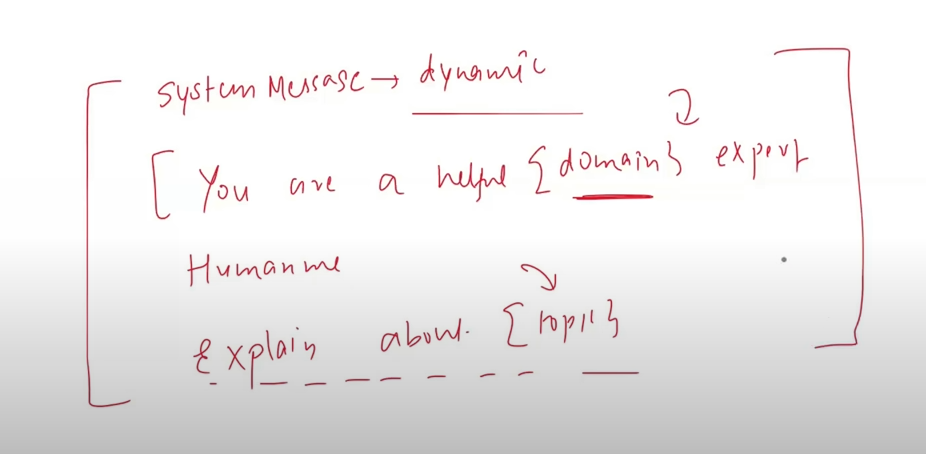 System Message → dynamic
[ You are a helpful {domain} expert
Humanme
Explain about {topic}